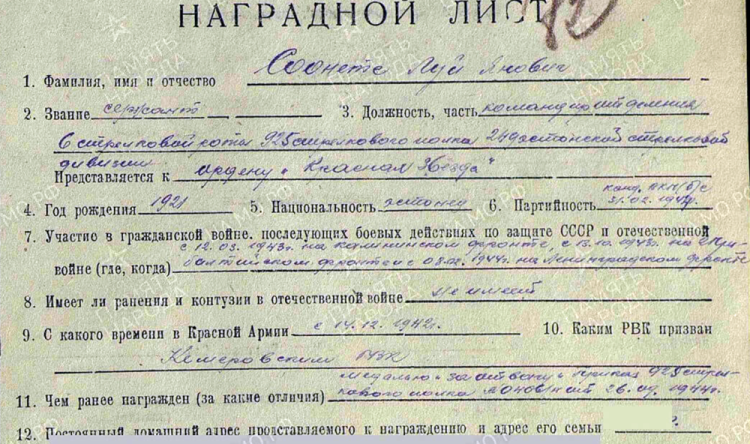 НАГРАДНОЙ ЛИСТ
1. Фамилия, имя и отчество Соонетс Луй Янович
2. Звание сержант 3. Должность, часть командир отделения
6 стрелковой роты 925 стрелкового полка 249 эстонской стрелковой
дивизии
Представляется к ордену „Красная Звезда"
канд. ВКП(б) с
4. Год рождения 1921 5. Национальность эстонец 6. Партийность 02.1944г.
7. Участие в гражданской войне, последующих боевых действиях по защите СССР и отечественной
с 12.03.1943г. на Калининском фронте, с 13.10.1943г. на 2 При-
войне (где, когда) балтийском фронте и с 08.02.1944г. на Ленинградском фронте
8. Имеет ли ранения и контузии в отечественной войне не имеет
9. С какого времени в Красной Армии с 14.12.1942г. 10. Каким РВК призван
Кемеровским РВК
медалью „За отвагу" приказ 925 стрел-
11. Чем ранее награжден (за какие отличия) кового полка 26.09.1944г.
12. Постоянный домашний адрес представляемого к награждению и адрес его семьи